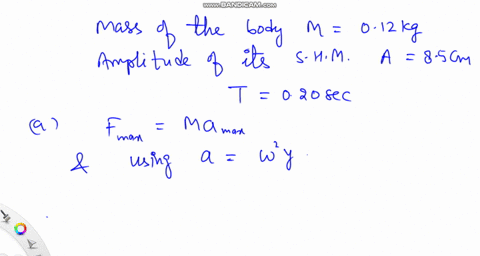 WWW.BANDICAM.COM
Mass of the body M = 0.12 kg
Amplitude of its S.H.M. A = 8.5 cm
T = 0.20 sec
(a) F_max = M a_max
& using a = ω²y